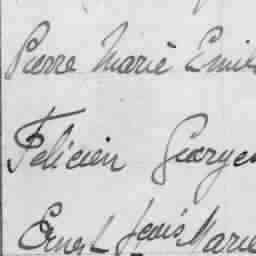 Pierre Marie Emile
Félicien Georges
Ernest Louis Marie